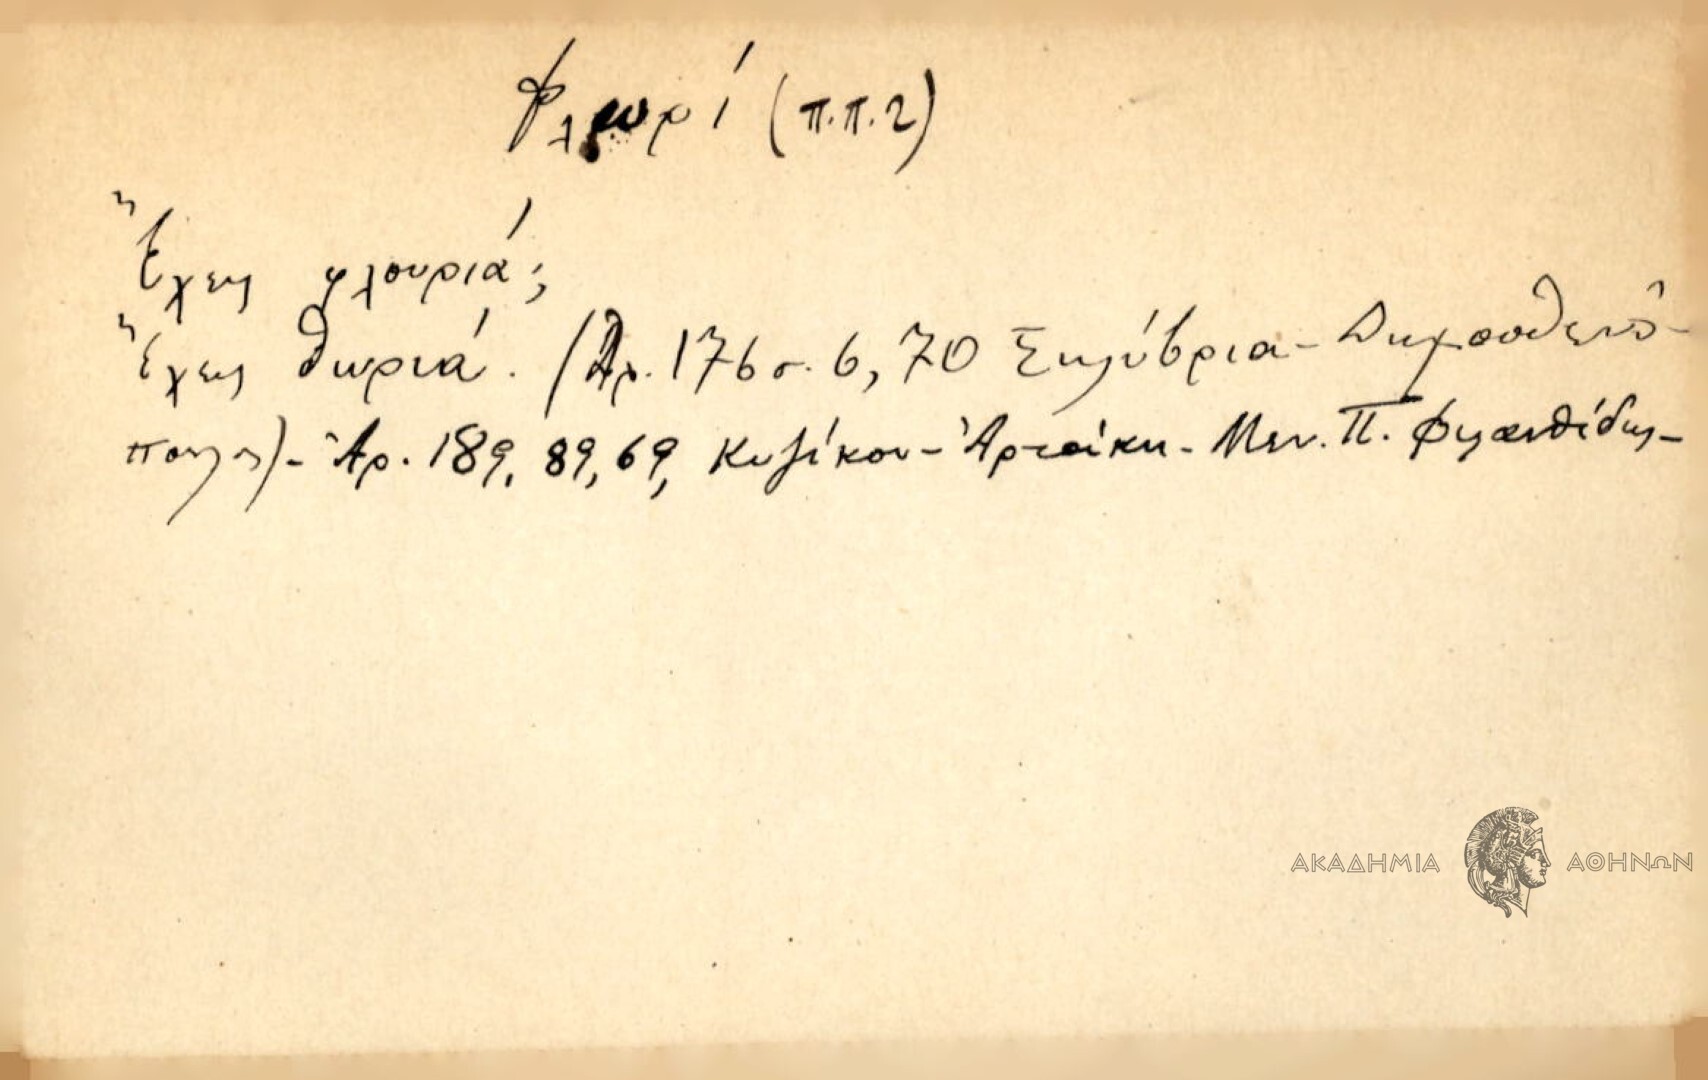 Φλουρί (π.π.2)
Ἔχεις φλουριά;
Ἔχεις θωριά. (Ἀρ. 176 σ. 6, 70 Σηλύβρια - Δημοσθενό-
πουλος) - Ἀρ. 189, 89, 69, Κυζίκου - Ἀρτάκη - Μεν. Π. Φιλανθίδης -
ΑΚΑΔΗΜΙΑ ΑΘΗΝΩΝ